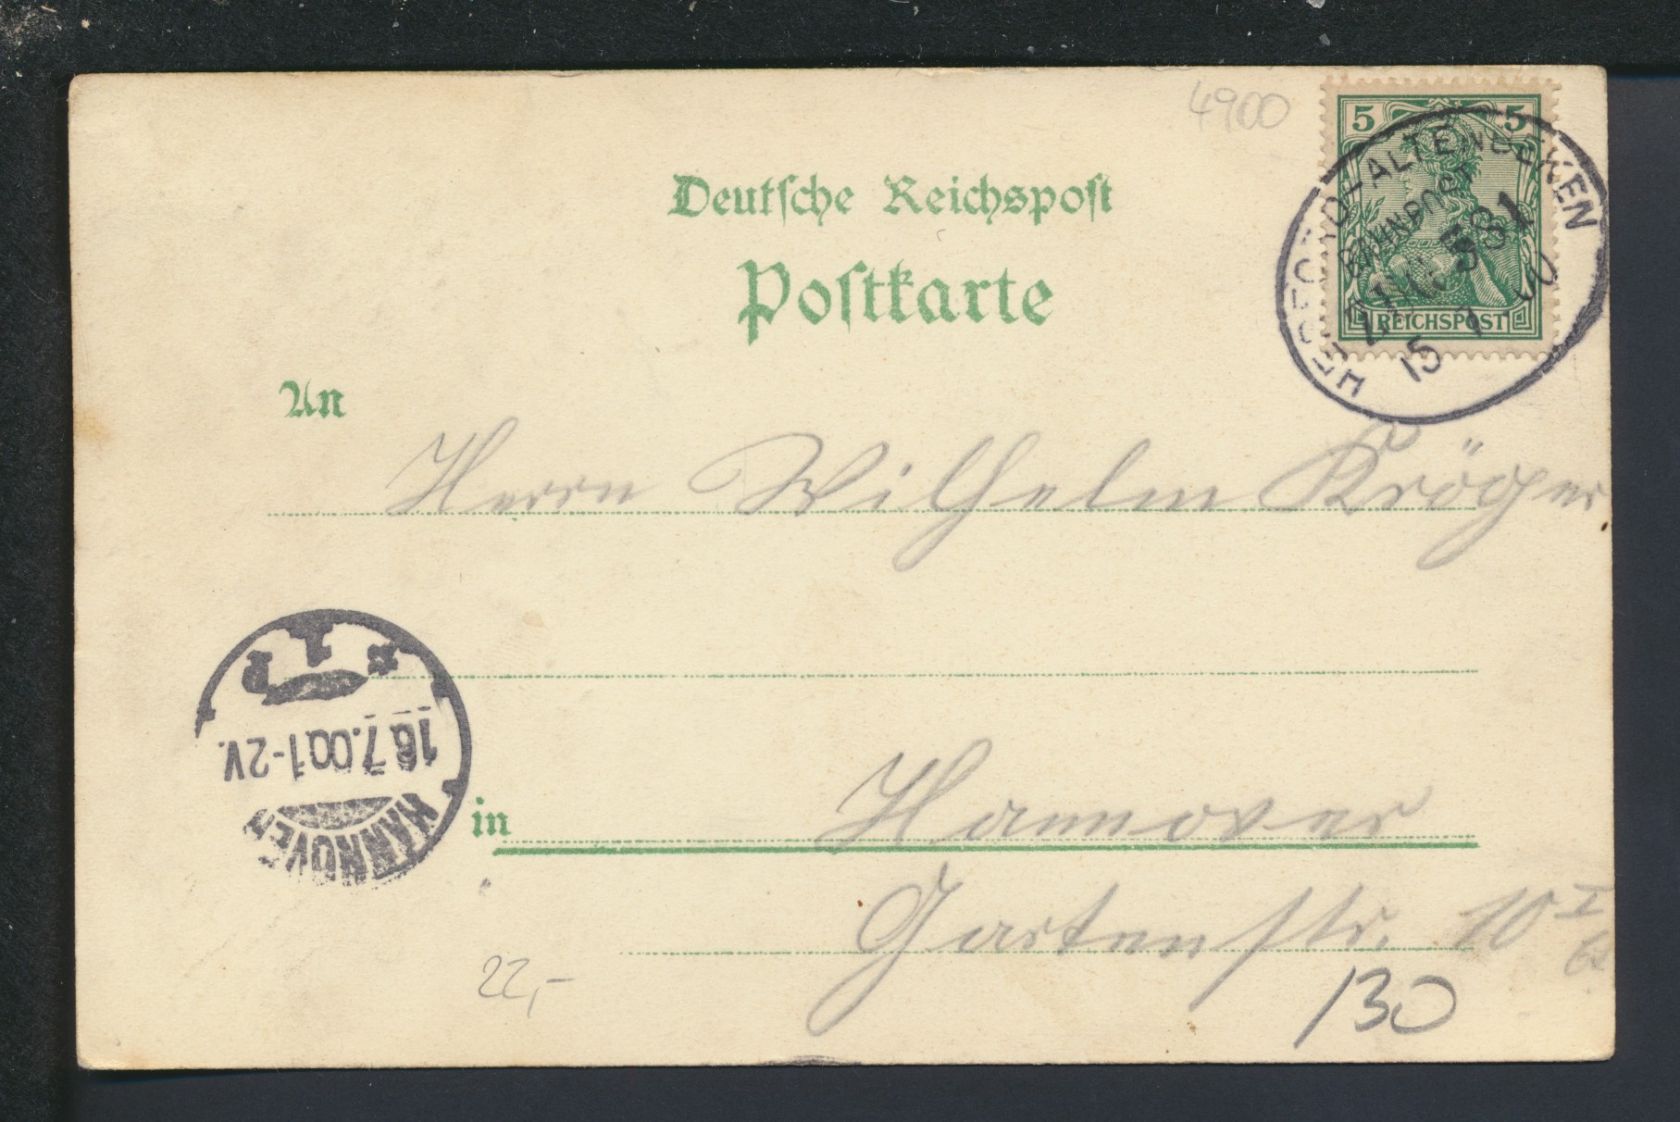 4900
5 5
REICHSPOST
HERFORD-ALTENBEKEN
BAHNPOST
ZUG 381
15 7 00
Deutsche Reichspost
Postkarte
An
Herrn Wilhelm Kröger
HANNOVER
16.7.00.1-2V.
1
in Hannover
Gartenstr. 10 I
22,-
130